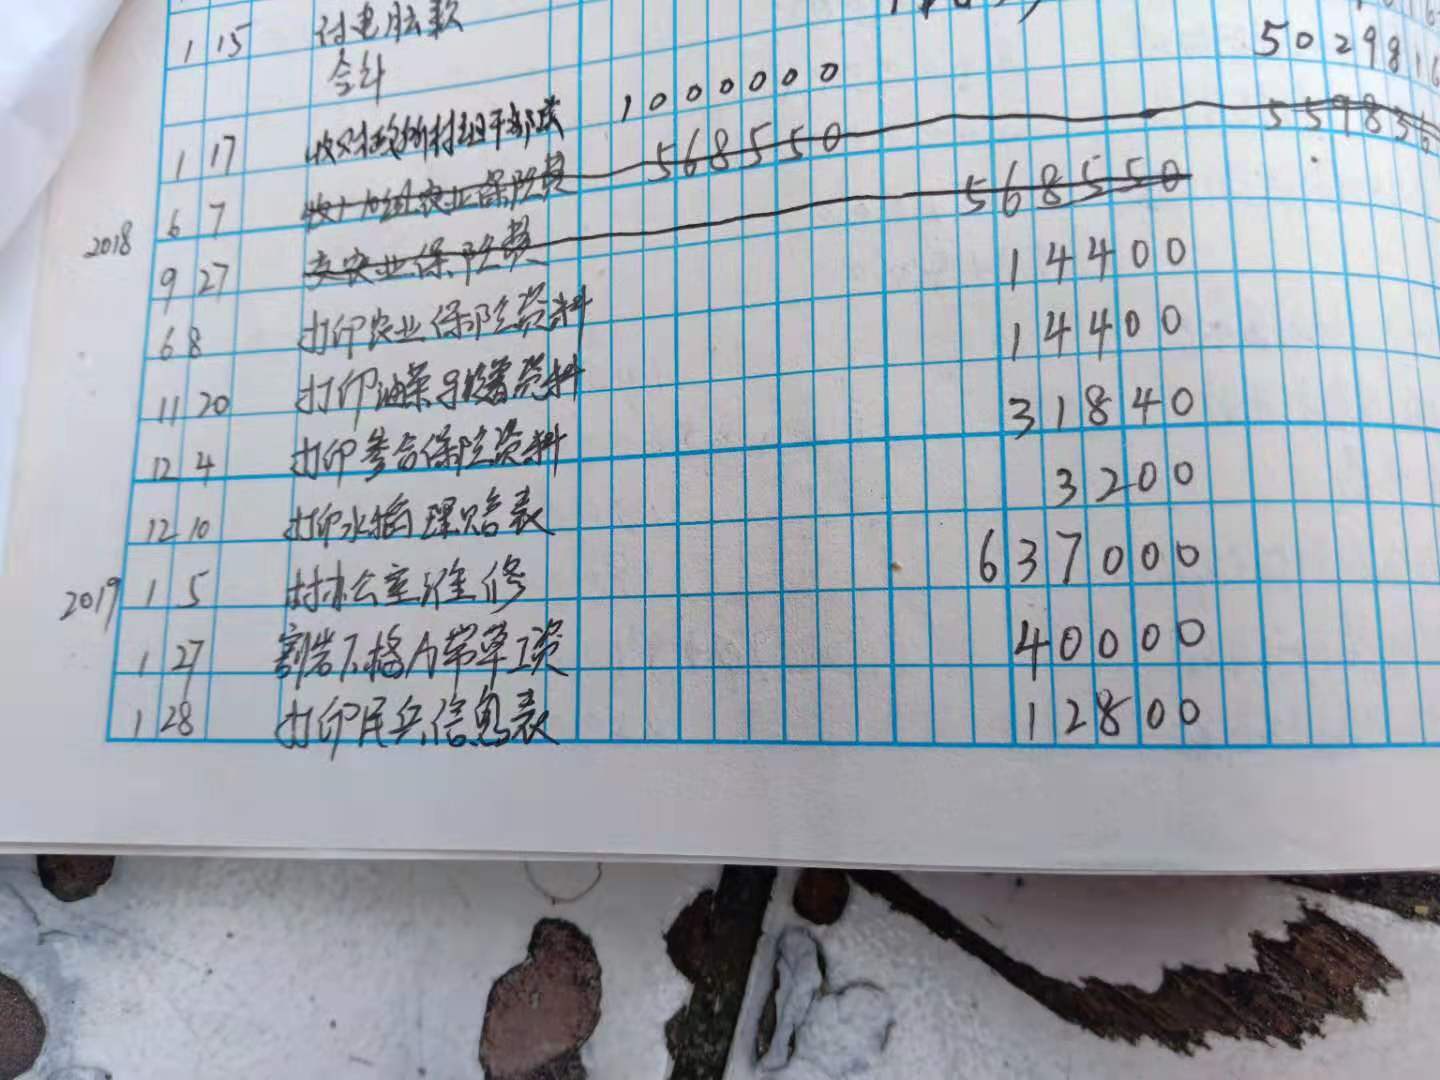 1 15 付电脑款
合计 502981
1 17 收财政拨村组干部款 1000000
2018 6 7 农业保险费 568550
9 27 交农业保险费 568550
6 8 打印农业保险资料 14400
11 20 打印油菜 资料 14400
12 4 打印参合保险资料 31840
12 10 打印水稻理赔表 3200
2019 1 5 村办公室维修 637000
1 27 草工资 40000
1 28 打印民兵信息表 12800